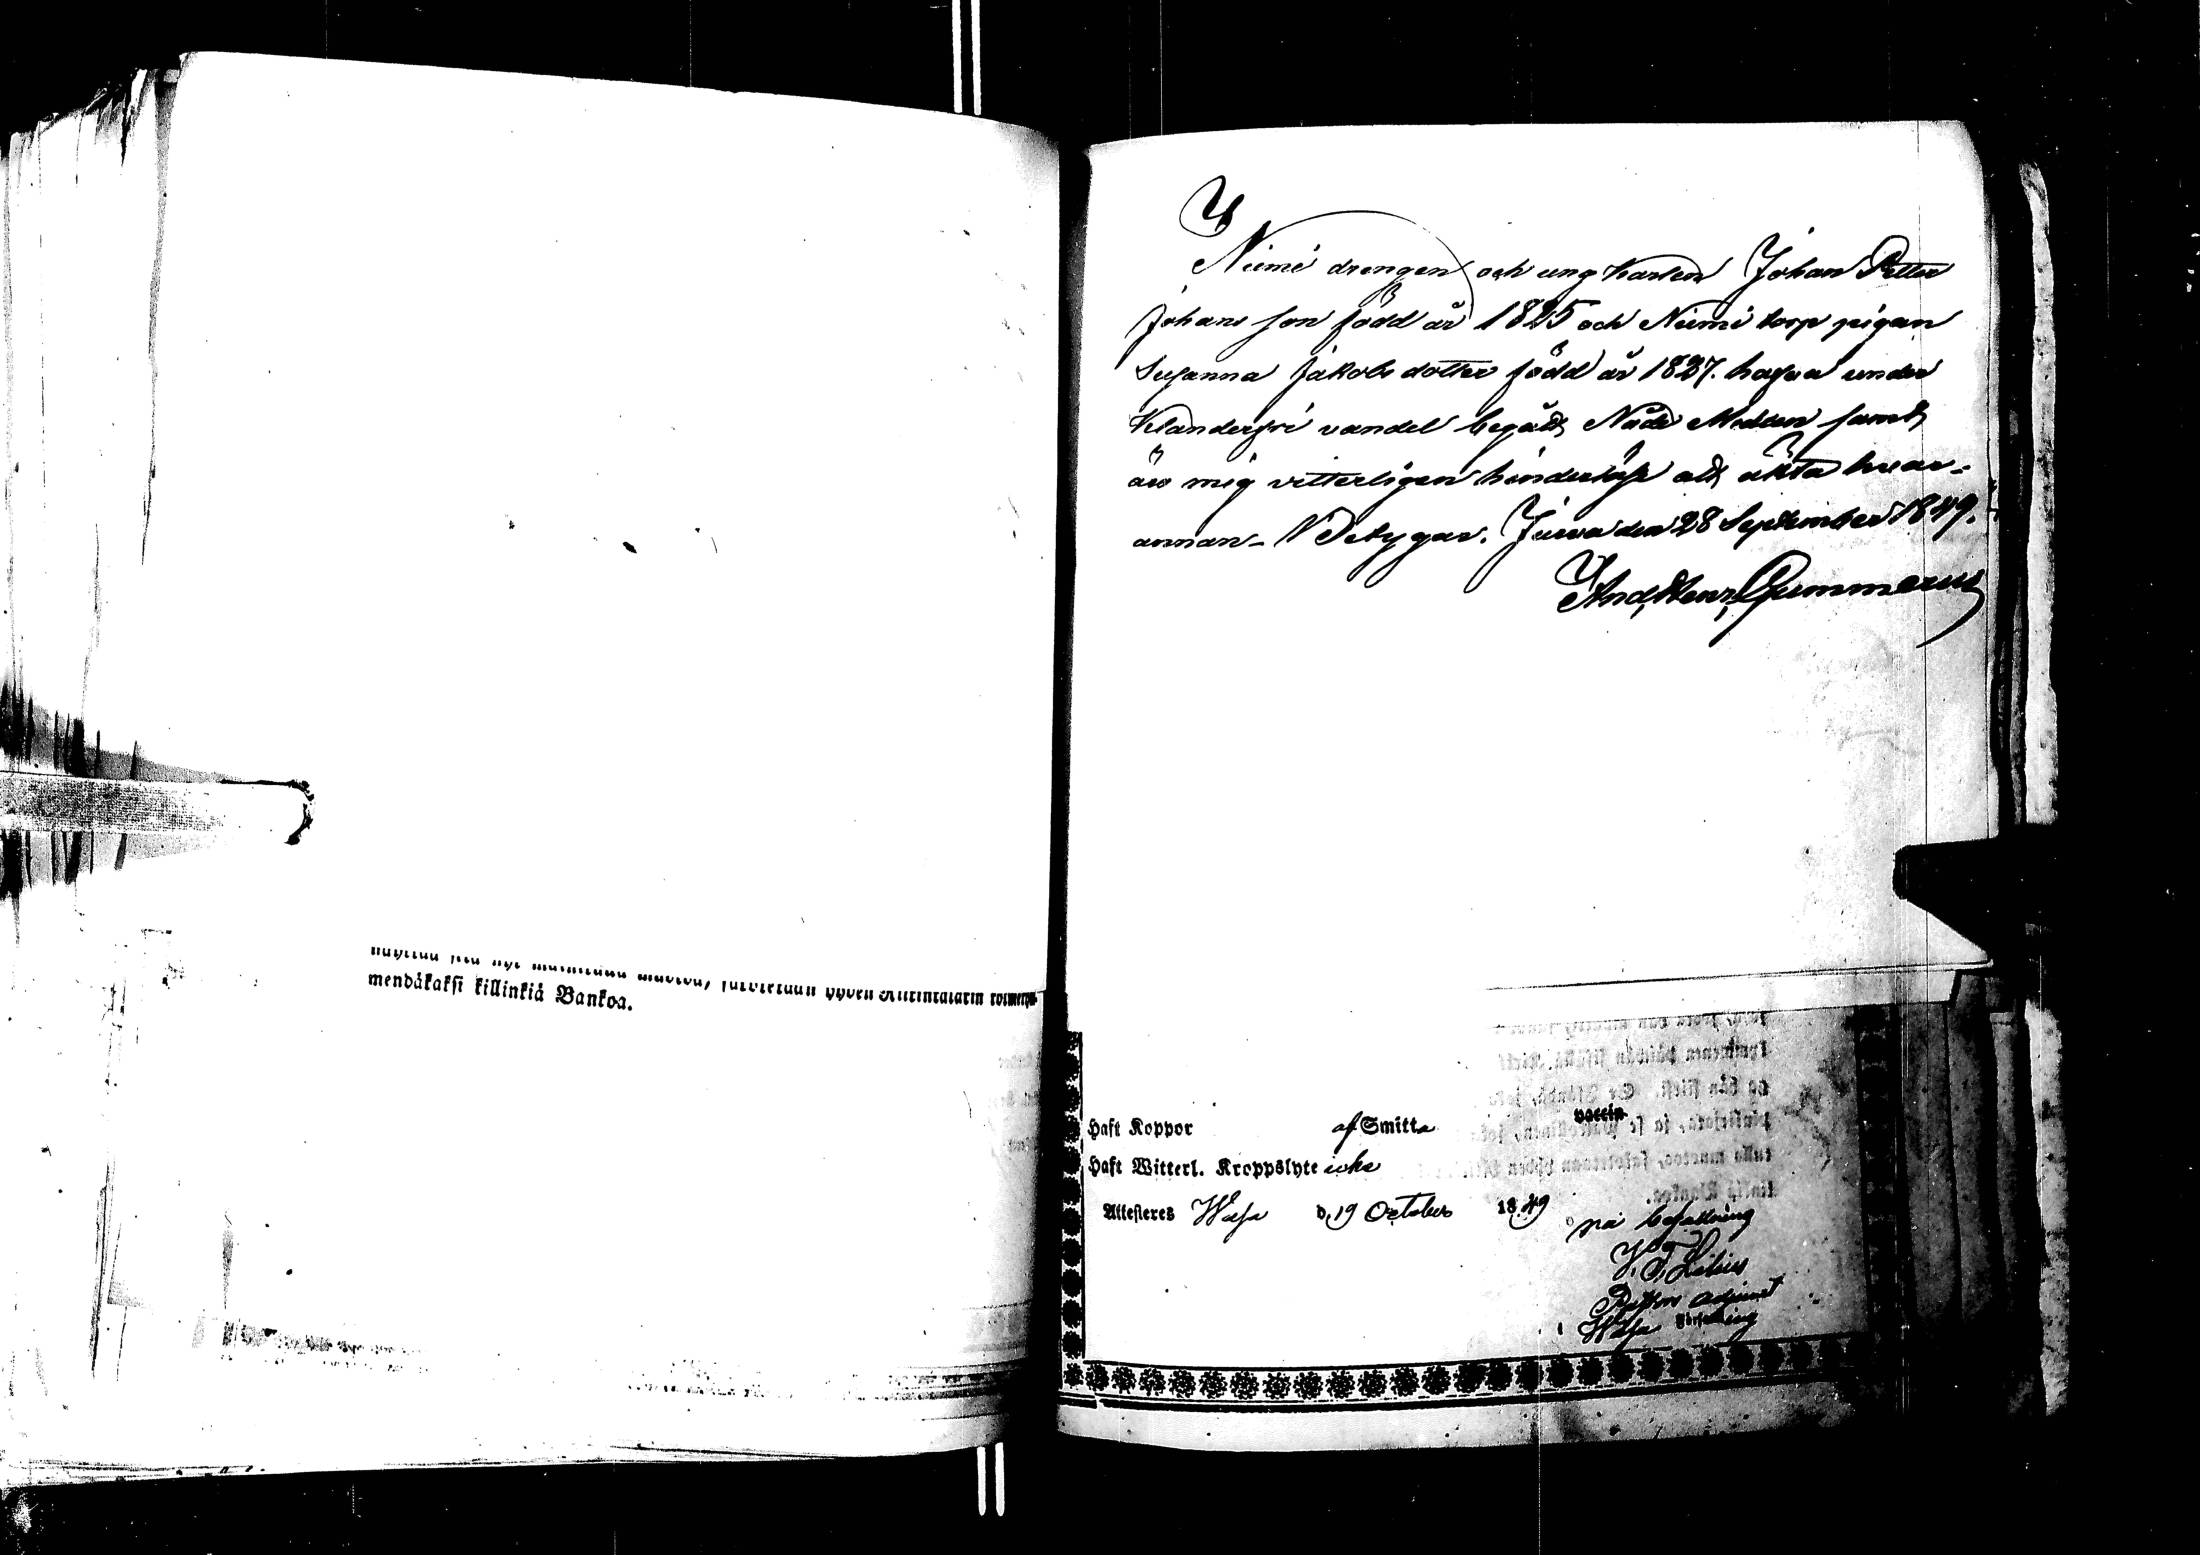 mendåkaksi killinkiä Bankoa.
Niemi drengen och ung karlen Johan Petter
Johans son född år 1825 och Niemi torp pigan
Susanna Jakobs dotter född år 1827. hafva under
Klanderfri vandel begått Nåde Medlen samt
äro mig vitterligen hinderlöse att äkta hvar-
annan - Betygar. Jurva den 28 September 1849.
And, Henr, Gummerus
Haft Koppor af Smitta vaccin
Haft Witterl. Kroppslyte icke
Attesteres Wasa d, 19 October 1849
på befallning
J. F. Lilius
Pastors adjunct
Wasa Församling